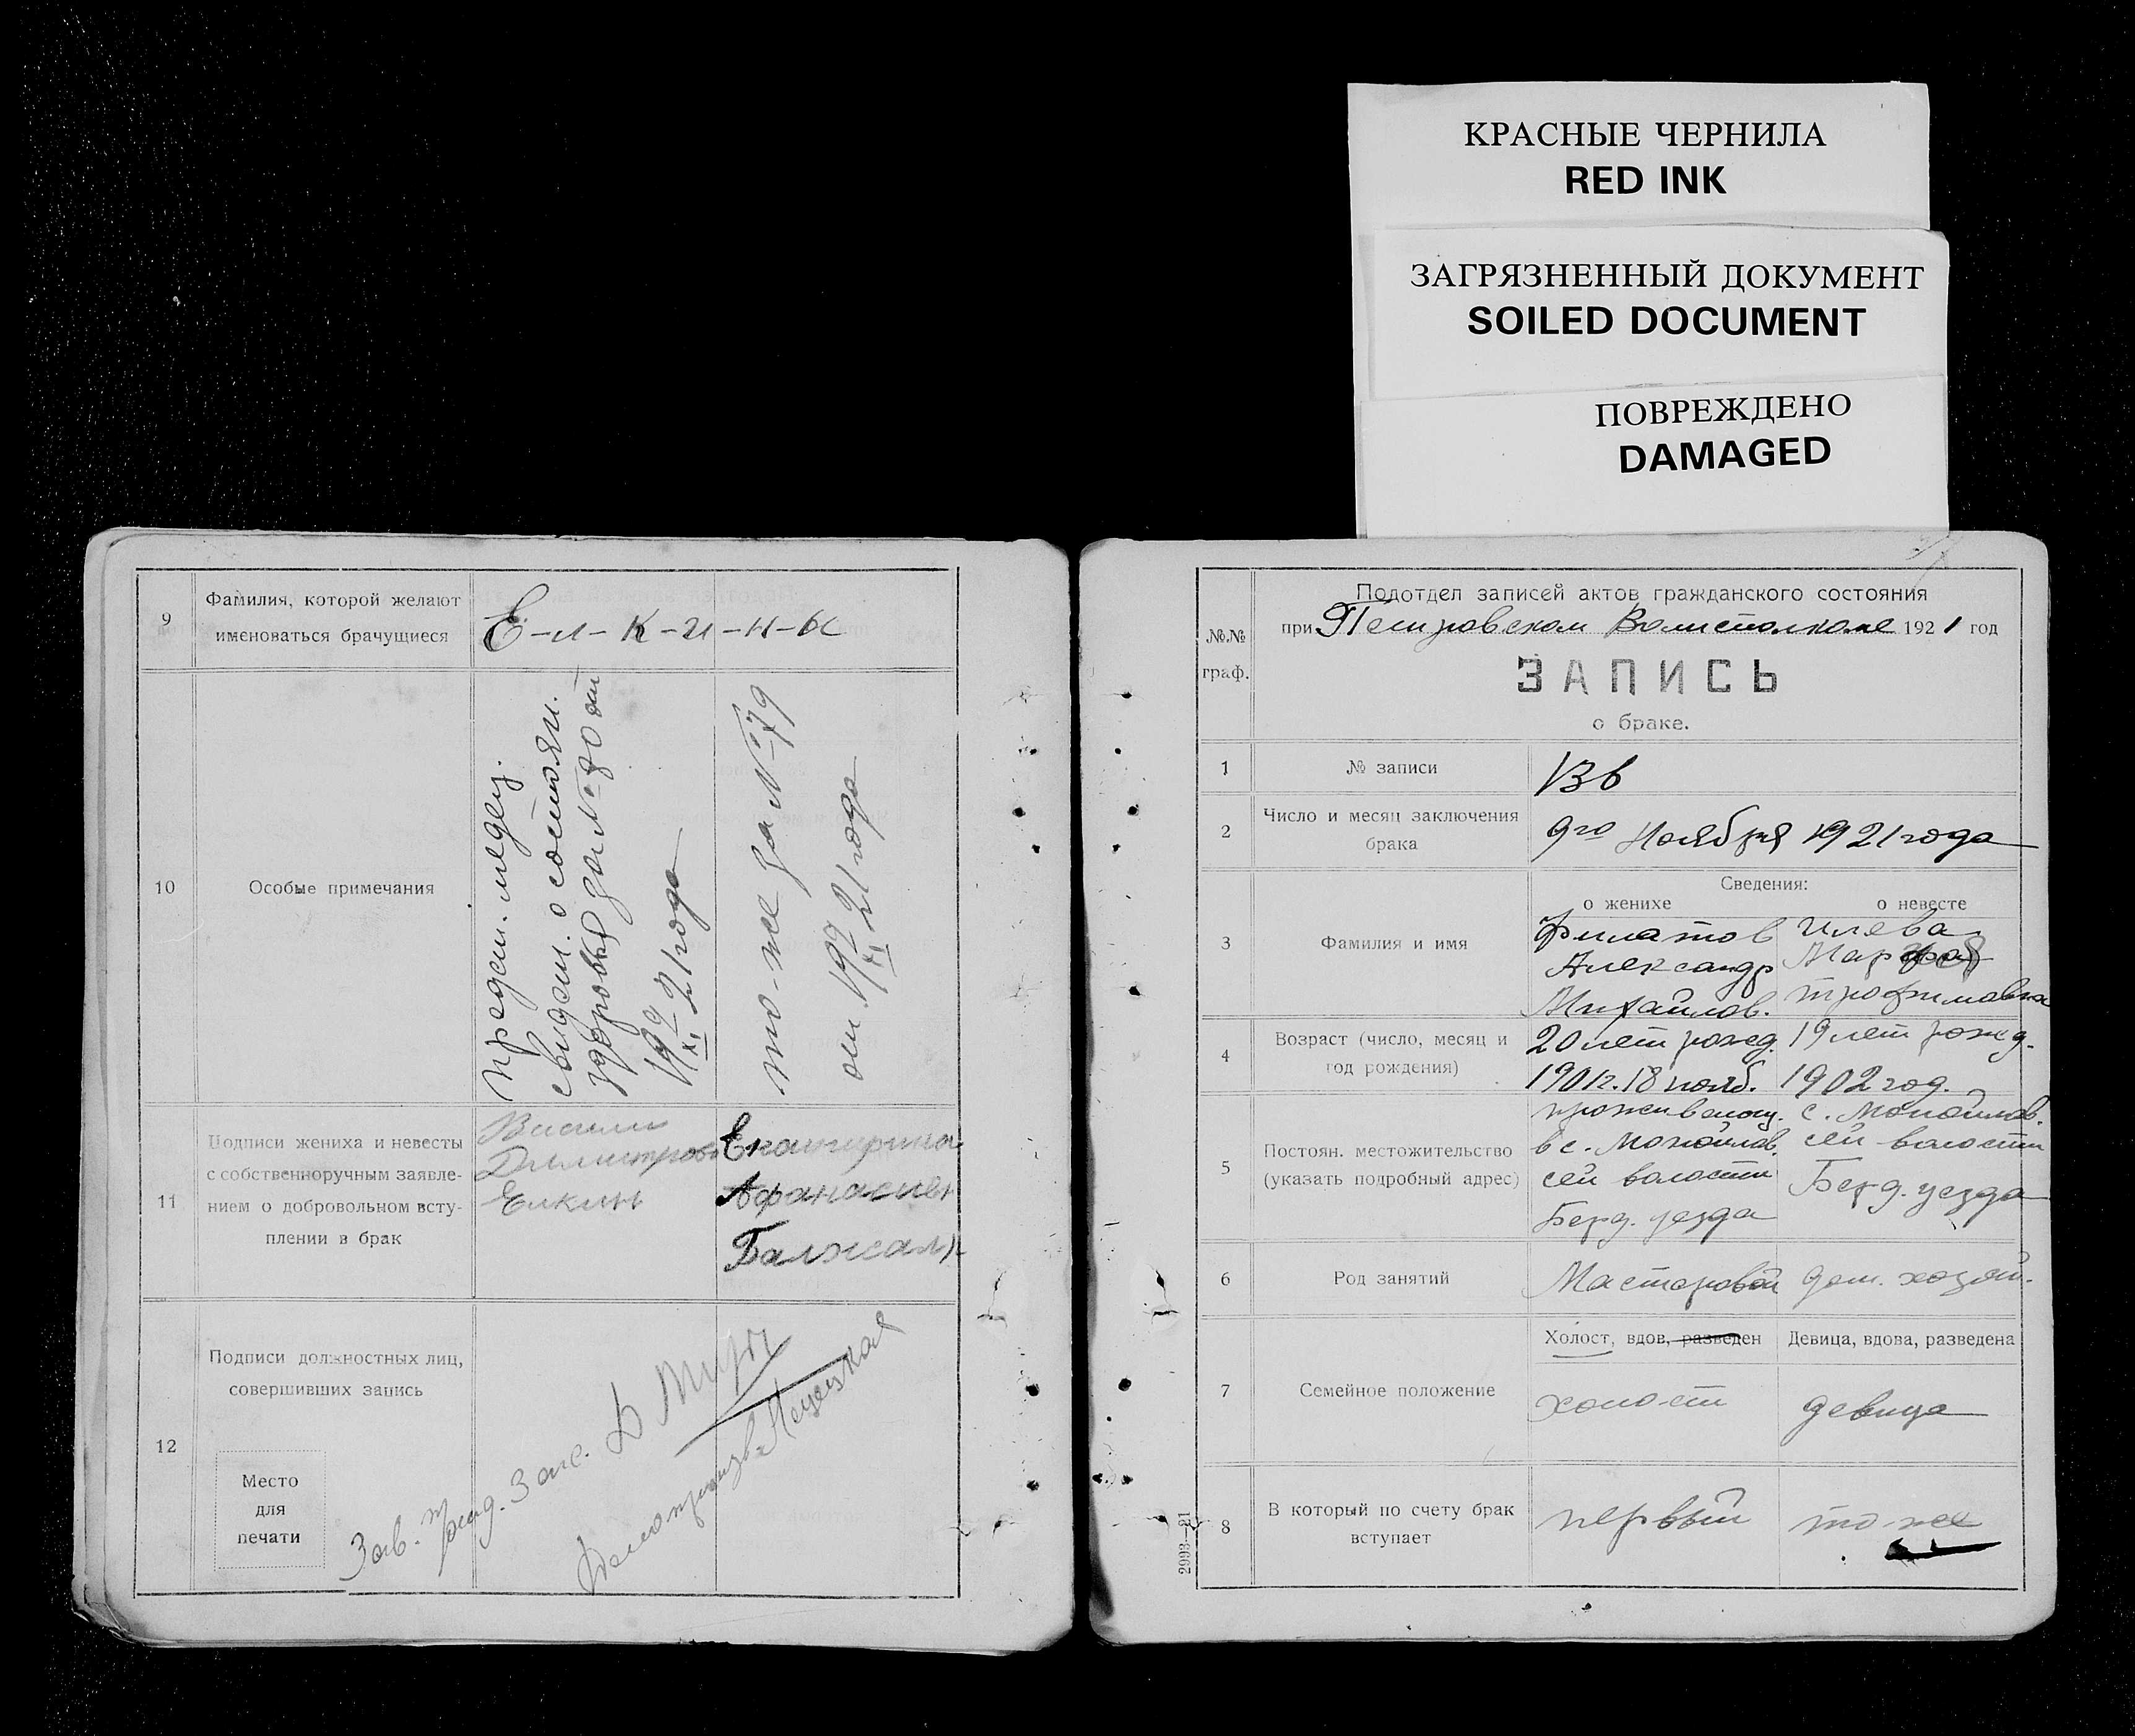 КРАСНЫЕ ЧЕРНИЛА
RED INK
ЗАГРЯЗНЕННЫЙ ДОКУМЕНТ
SOILED DOCUMENT
ПОВРЕЖДЕНО
DAMAGED
9
Фамилия, которой желают
именоваться брачущиеся
Е-л-к-и-н-ы
10
Особые примечания
предст. медец.
свидет. о состояни.
здоровья за № 80 от
9/XI 21 года
то-же за № 79
от 9/XI 21 года
11
Подписи жениха и невесты
с собственноручным заявле-
нием о добровольном всту-
плении в брак
Василий
Елкин
Екатерина
12
Подписи должностных лиц,
совершивших запись
Место
для
печати
Зав. Загс.
№№
граф.
Подотдел записей актов гражданского состояния
при Петровском Волисполкоме 1921 год
ЗАПИСЬ
о браке.
1
№ записи
2
Число и месяц заключения
брака
9го Ноября 1921 года
3
Фамилия и имя
Сведения:
о женихе
о невесте
Филатов
Александр
Михайлов.
Трофимовна
4
Возраст (число, месяц и
год рождения)
20 лет рожд.
1901 г. 18 нояб.
19 лет рожд.
1902 год.
5
Постоян. местожительство
(указать подробный адрес)
в с.
сей волости
Берд. уезда
с.
сей волости
Берд. уезда
6
Род занятий
Мастеровой
дом. хозяй.
7
Семейное положение
Холост, вдов, разведен
Девица, вдова, разведена
холост
девица
8
В который по счету брак
вступает
первый
то-же
2993—21